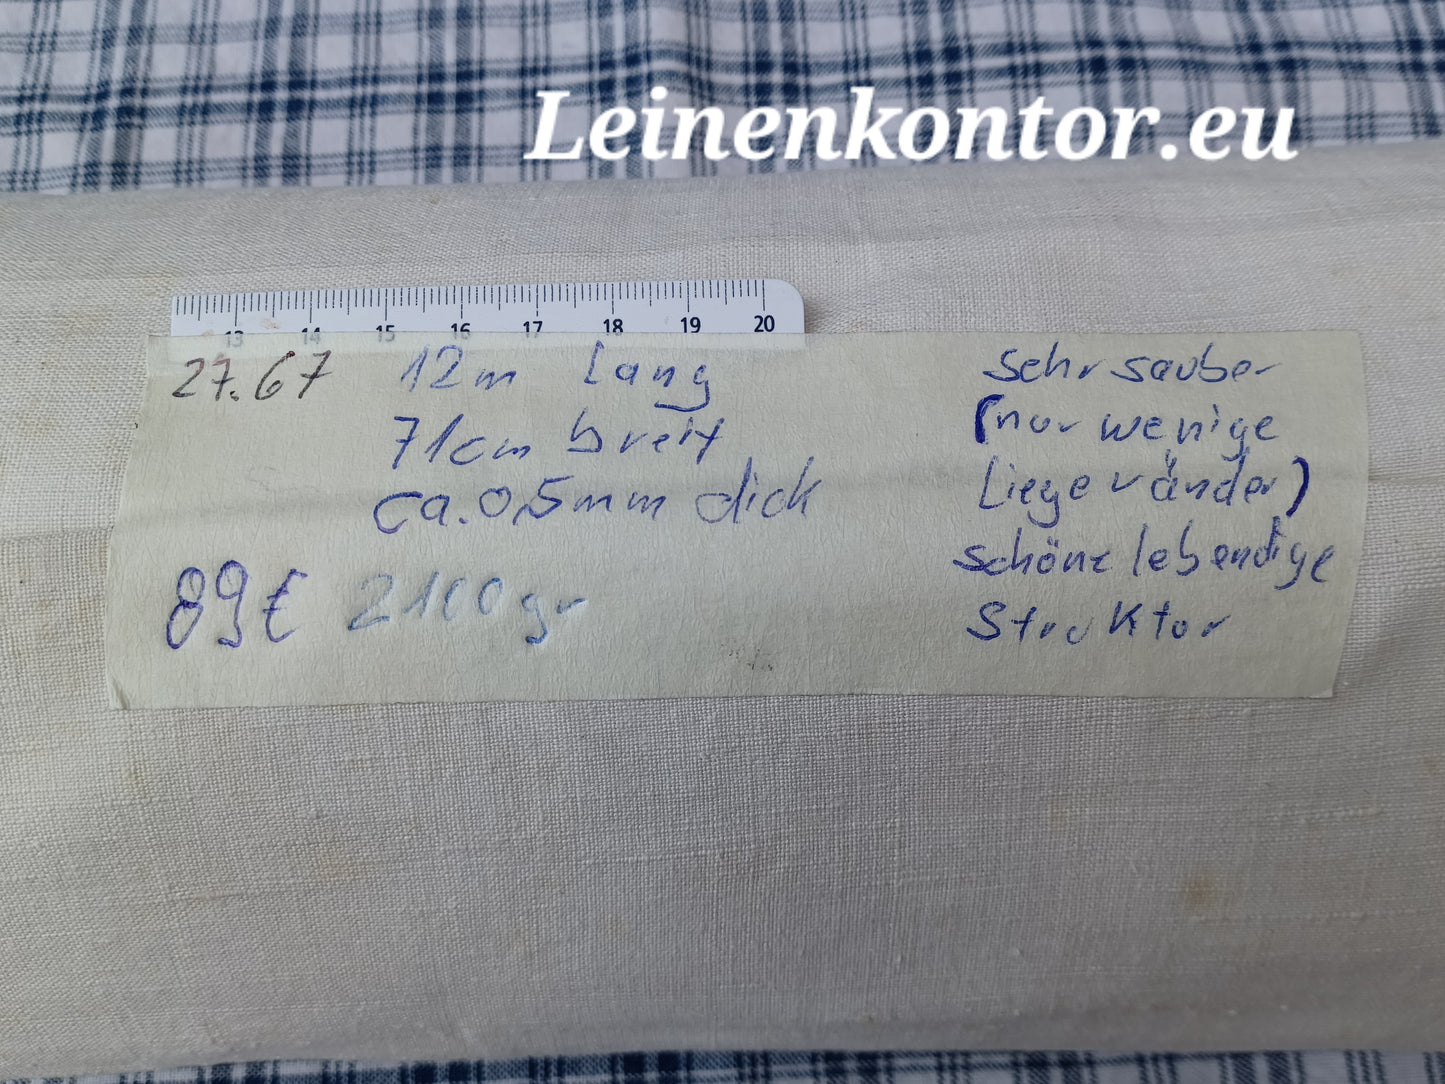 Leinenkontor.eu
13 14 15 16 17 18 19 20
27.67
12m lang
71cm breit
ca. 0,5mm dick
89€ 2100gr
sehr sauber
(nur wenige
Liegeränder)
schöne lebendige
Struktur